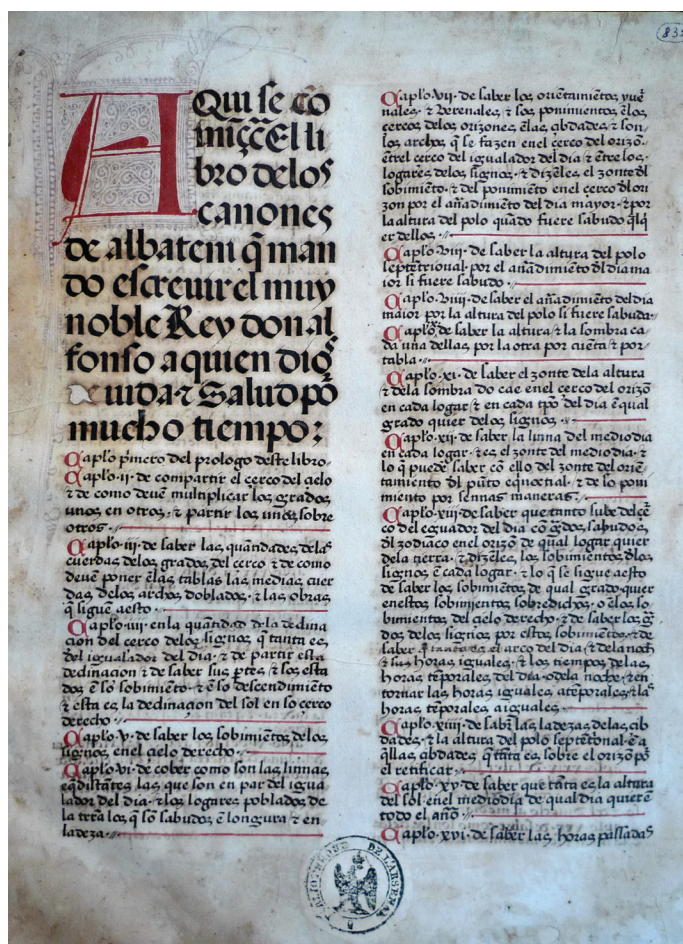 AQui se cō
miēçā El li
bro delos
canones
de albateni q̄ man
do escreuir el muy
noble Rey don al
fonso a quien dios
de uida ⁊ Salud pō
mucho tiempo:
Caplo p̄mero del prologo deste libro.
Caplo .ii. de compartir el cerco del cielo
⁊ de como deuē multiplicar los grados,
unos en otros; ⁊ partir los unos sobre
otros.
Caplo .iii. de saber las quātidades delas
cuerdas delos grados, del cerco ⁊ de como
deuē poner ēlas tablas las medias cuer
das, delos archos doblados, ⁊ las obras,
q̄ siguē aesto.
Caplo .iiii. en la quātidad dela declina
cion del cerco delos signos, q̄ tanta es,
del igualador del dia. ⁊ de partir esta
declinacion ⁊ de saber sus p̄tes, ⁊ sos esta
dos ē so sobimiēto. ⁊ ē so descendimiēto
⁊ esta es la declinacion del sol en so cerco
derecho.
Caplo .v. de saber los sobimiētos delos
signos, en el cielo derecho.
Caplo .vi. de cober como son las linnas,
eq̄distātes, las que son en par del igua
lador del dia. ⁊ los logares poblados de
la trra los q̄ sō sabudos ē longura ⁊ en
ladeza.
Caplo .vii. de saber los oriētamiētos, yuē
nales, ⁊ Verenales, ⁊ sos ponimientos ēlos
cercos delos orizones ēlas çibdades, ⁊ son
los archos, q̄ se fazen en el cerco del orizō.
ētrel cerco del igualador del dia ⁊ ētre los,
logares delos signos. ⁊ dizēles el zonte dl
sobimiēto. ⁊ del ponimiēto en el cerco dl ori
zon por el añadimiēto del dia mayor. ⁊ por
la altura del polo quādo fuere sabudo q̄lq̄
er dellos.
Caplo .viii. de saber la altura del polo
septētrional por el añadimiēto dl dia ma
ior si fuere sabudo.
Caplo .viiii. de saber el añadimiēto del dia
maior por la altura del polo si fuere sabuda.
Caplo .x. de saber la altura, ⁊ la sombra ca
da una dellas, por la otra por cuēta ⁊ por
tabla.
Caplo .xi. de saber el zonte dela altura
⁊ dela sombra do cae en el cerco del orizō
en cada logar ⁊ en cada tp̄o del dia ē qual
grado quier delos signos.
Caplo .xii. de saber la linna del mediodia
en cada logar. ⁊ es el zonte del mediodia. ⁊
lo q̄ puedē saber cō ello del zonte del oriē
tamiento dl pūto equoctial. ⁊ de so poni
miento por sennas maneras.
Caplo .xiii. de saber que tanto sube del cer
co del equador del dia cō gdos, sabudos,
dl zodiaco en el orizō de qual logar quier
dela tierra. ⁊ dizēles, los sobimiētos dlos
signos ē cada logar. ⁊ lo q̄ se sigue aesto
de saber los sobimiētos de qual grado quier
en estos sobimientos sobredichos, o ēlos so
bimientos del cielo derecho. ⁊ de saber los g̃
dos delos signos por estos sobimiētos, ⁊ de
saber q̄ tanto es el arco del dia ⁊ dela noch
⁊ sus horas iguales, ⁊ los tiempos delas,
horas tēporales del dia. o dela noche ⁊ en
tornar las horas iguales atēporales ⁊ las
horas tēporales, a iguales.
Caplo .xiiii. de sabr̄ las ladezas delas çib
dades. ⁊ la altura del polo septētonal. ē a
q̄llas, çibdades q̄ tāta es, sobre el orizō pō
el retificar.
Caplo .xv. de saber que tāta es la altura
del sol en el mediodia de qual dia quierē
todo el año.
Caplo .xvi. de saber las horas passadas